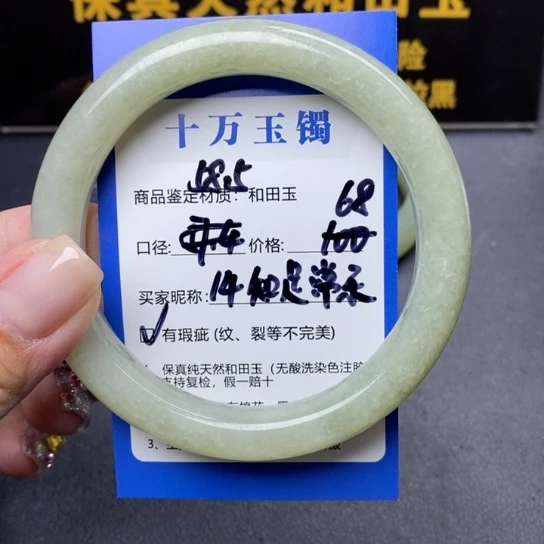 保真天然和田玉
险
假
十万玉镯
58.5
商品鉴定材质：和田玉
68
口径: 价格: 100
买家昵称: 14知足常乐
✓有瑕疵 (纹、裂等不完美)
保真纯天然和田玉（无酸洗染色注胶
支持复检，假一赔十
3、